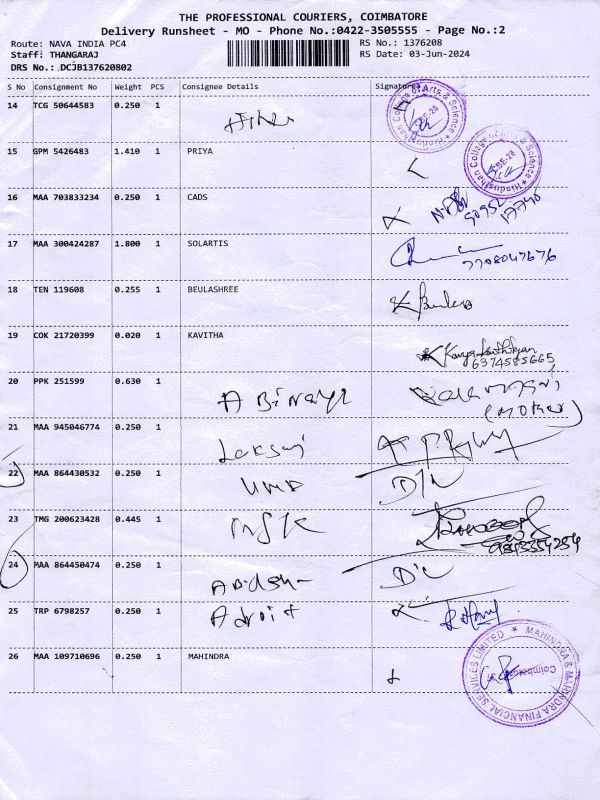 THE PROFESSIONAL COURIERS, COIMBATORE
Delivery Runsheet - MO - Phone No.:0422-3505555 - Page No.:2
Route: NAVA INDIA PC4
RS No.: 1376208
Staff: THANGARAJ
RS Date: 03-Jun-2024
DRS No.: DCJB137620802
S No Consignment No Weight PCS Consignee Details Signature
14 TCG 50644583 0.250 1
Hindusthan College of Arts & Science
15 GPM 5426483 1.410 1 PRIYA
Hindusthan College of Arts & Science
CBE-28
16 MAA 703833234 0.250 1 CADS
17 MAA 300424287 1.800 1 SOLARTIS
7708047676
18 TEN 119608 0.255 1 BEULASHREE
19 COK 21720399 0.020 1 KAVITHA
6374585665
20 PPK 251599 0.630 1 ABinaya
(Mother)
21 MAA 945046774 0.250 1
22 MAA 864430532 0.250 1 Uma
23 TMG 200623428 0.445 1
24 MAA 864450474 0.250 1
25 TRP 6798257 0.250 1 Adroit
26 MAA 109710696 0.250 1 MAHINDRA
MAHINDRA & MAHINDRA FINANCIAL SERVICES LIMITED
Coimbatore